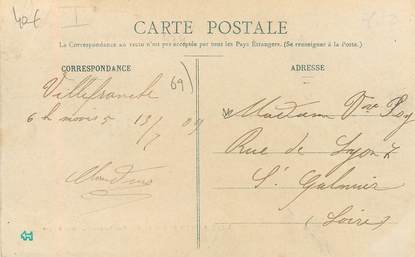 40€ I
CARTE POSTALE
La Correspondance au recto n'est pas acceptée par tous les Pays Étrangers. (Se renseigner à la Poste.)
CORRESPONDANCE
69)
Villefranche
6 h moins 5 13/7 09
ADRESSE
Madame Vve
Rue de Lyon
St Galmier
(Loire)